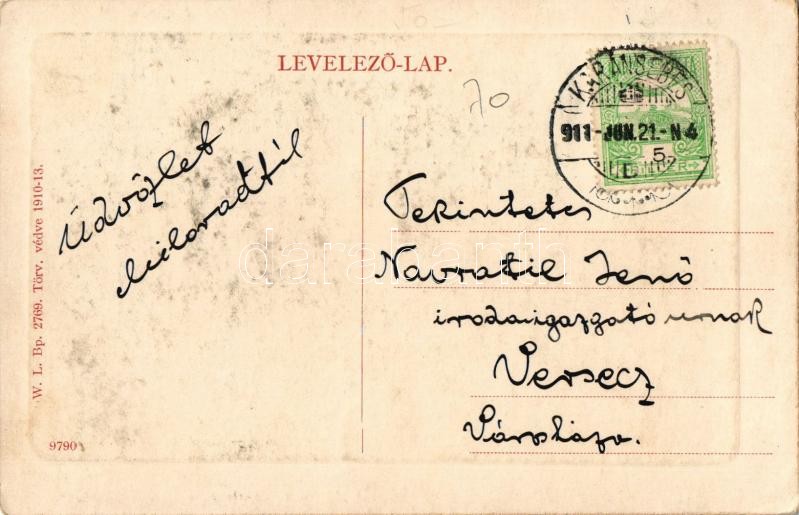 LEVELEZŐ-LAP.
70
KARÁNSEBES
911-JUN.21.-N4
5
Üdvözlet
Miloradtól
Tekintetes
Navratil Jenő
irodaigazgató urnak
Versecz
Városháza.
W. L. Bp. 2769. Törv. védve 1910-13.
9790
darabanth